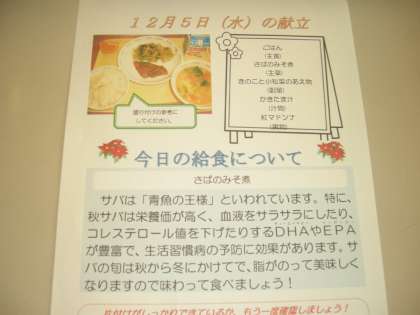 12月5日（水）の献立
ごはん
（主食）
さばのみそ煮
（主菜）
きのこと小松菜のあえ物
（副菜）
かきたま汁
（汁物）
紅マドンナ
（果物）
盛り付けの参考に
してください。
今日の給食について
さばのみそ煮
サバは「青魚の王様」といわれています。特に、
秋サバは栄養価が高く、血液をサラサラにしたり、
コレステロール値を下げたりするDHAやEPA
が豊富で、生活習慣病の予防に効果があります。サ
バの旬は秋から冬にかけてで、脂がのって美味しく
なりますので味わって食べましょう！
片付けがしっかりできているか、もう一度確認しましょう！